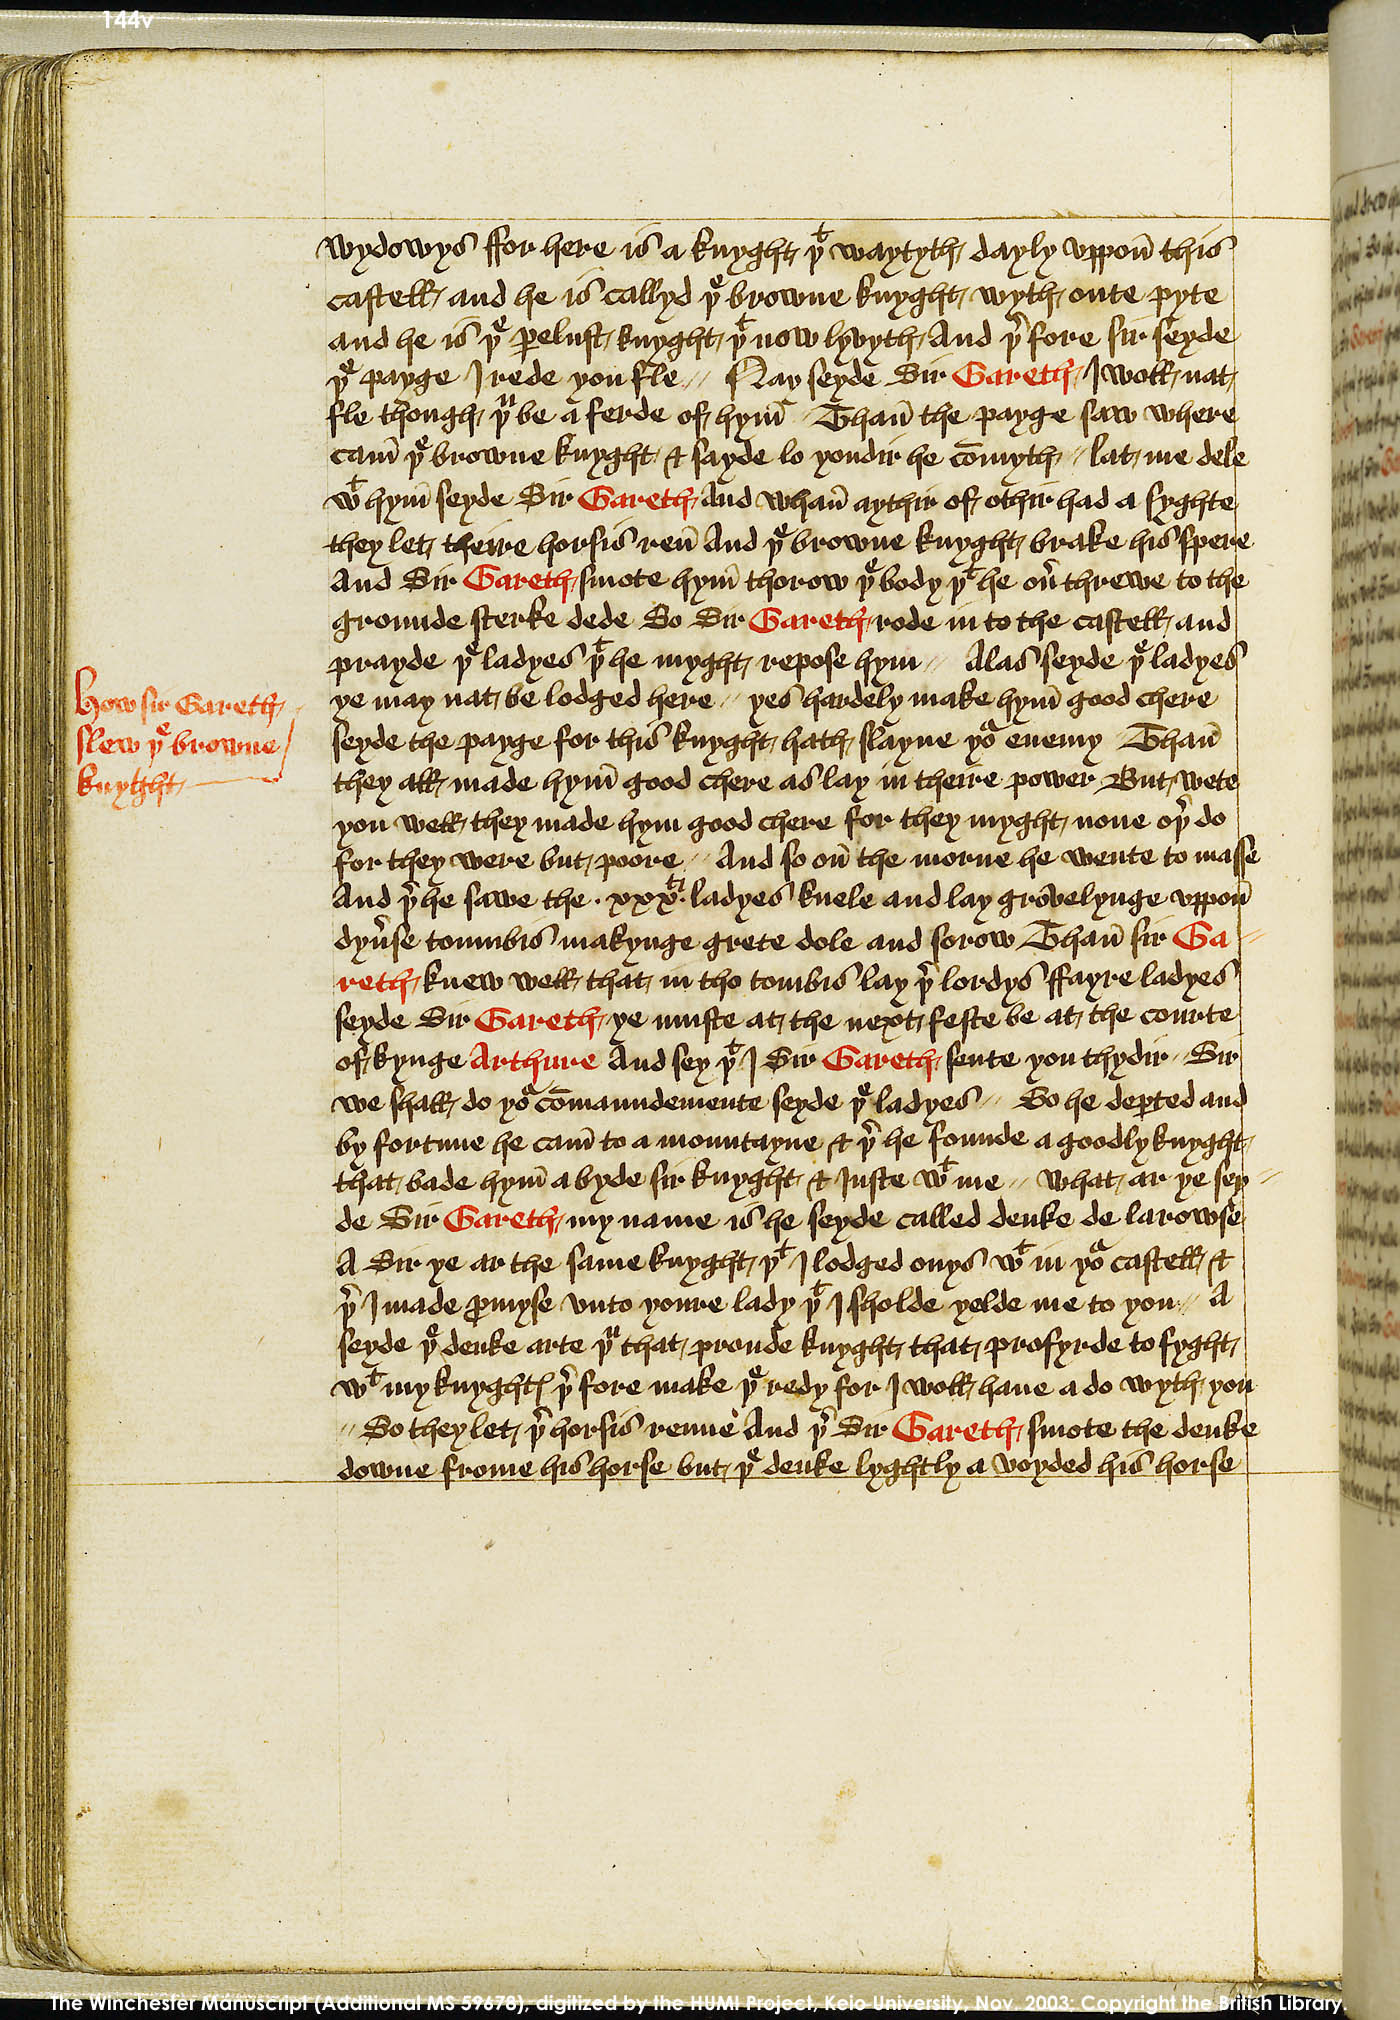 144v
wydowys ffor here is a knyght yͭ waytyth dayly vppon̄ this
castell and he is callyd yͤ browne knyght wyth oute pyte
and he is yͤ ꝑelust knyght yͭ now lyvyth And yͬ fore sir seyde
yͤ payge I rede you fle // Nay seyde Sir Gareth I woll nat
fle though yͧ be a ferde of hym̄ Than̄ the payge saw where
cam̄ yͤ browne knyght & sayde lo yondir he com̄yth // lat me dele
wͭ hym̄ seyde Sir Gareth And whan̄ aythir of othir had a syghte
they let theire horsis ren̄ And yͤ browne knyght brake his spere
And Sir Gareth smote hym̄ thorow yͤ body yͭ he ou͛ threwe to the
grounde sterke dede So Sir Gareth rode in to the castell and
prayde yͤ ladyes yͭ he myght repose hym // Alas seyde yͤ ladyes
ye may nat be lodged here // yes hardely make hym̄ good chere
seyde the payge for this knyght hath slayne yoͬ enemy Than̄
they all made hym̄ good chere as lay in theire power But wete
you well they made hym good chere for they myght none oyͬ do
for they were but poore // And so on̄ the morne he wente to masse
And yͬ he sawe the .xxxͭͥ. ladyes knele and lay grov̄elynge vppon̄
dyu͛se toumbis makynge grete dole and sorow Than̄ sir Ga
reth knew well that in tho tombis lay yͬ lordys ffayre ladyes
seyde Sir Gareth ye muste at the next feste be at the courte
of kynge Arthure And sey yͭ I Sir Gareth sente you thydir // Sir
we shall do yoͬ com̄aundemente seyde yͤ ladyes // So he deꝑted and
by fortune he cam̄ to a mountayne & yͬ he founde a goodly knyght
that bade hym̄ abyde sir knyght & Juste wͭ me // what ar ye sey
de Sir Gareth my name is he seyde called deuke de larowse
A Sir ye ar the same knyght yͭ I lodged onys wͭ in yoͬ castell &
yͬ I made ꝓmyse vnto youre lady yͭ I sholde yelde me to you // A
seyde yͤ deuke arte yͧ that proude knyght that profyrde to fyght
wͭ my knyghtꝭ yͬ fore make yͤ redy for I woll haue a do wyth you
// So they let yͬ horsis renne And yͬ Sir Gareth smote the deuke
downe frome his horse but yͤ deuke lyghtly a voyded his horse
How sir Gareth
slew yͤ browne
knyght
The Winchester Manuscript (Additional MS 59678), digitized by the HUMI Project, Keio University, Nov. 2003; Copyright the British Library.